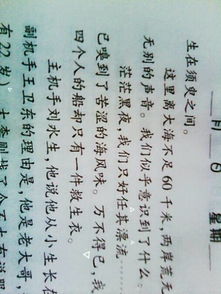 月 日 星期
生在须臾之间。
这里离大海不足60千米,两岸荒无
无别的声音。我们似乎意识到了什么。
茫茫黑夜,我们只好任其漂流……
已嗅到了苦涩的海风味。万不得已,我
四个人的船却只有一件救生衣。
主机手刘水生,他说他从小生长在
副机手王卫东的理由是,他是老大哥,
有22岁